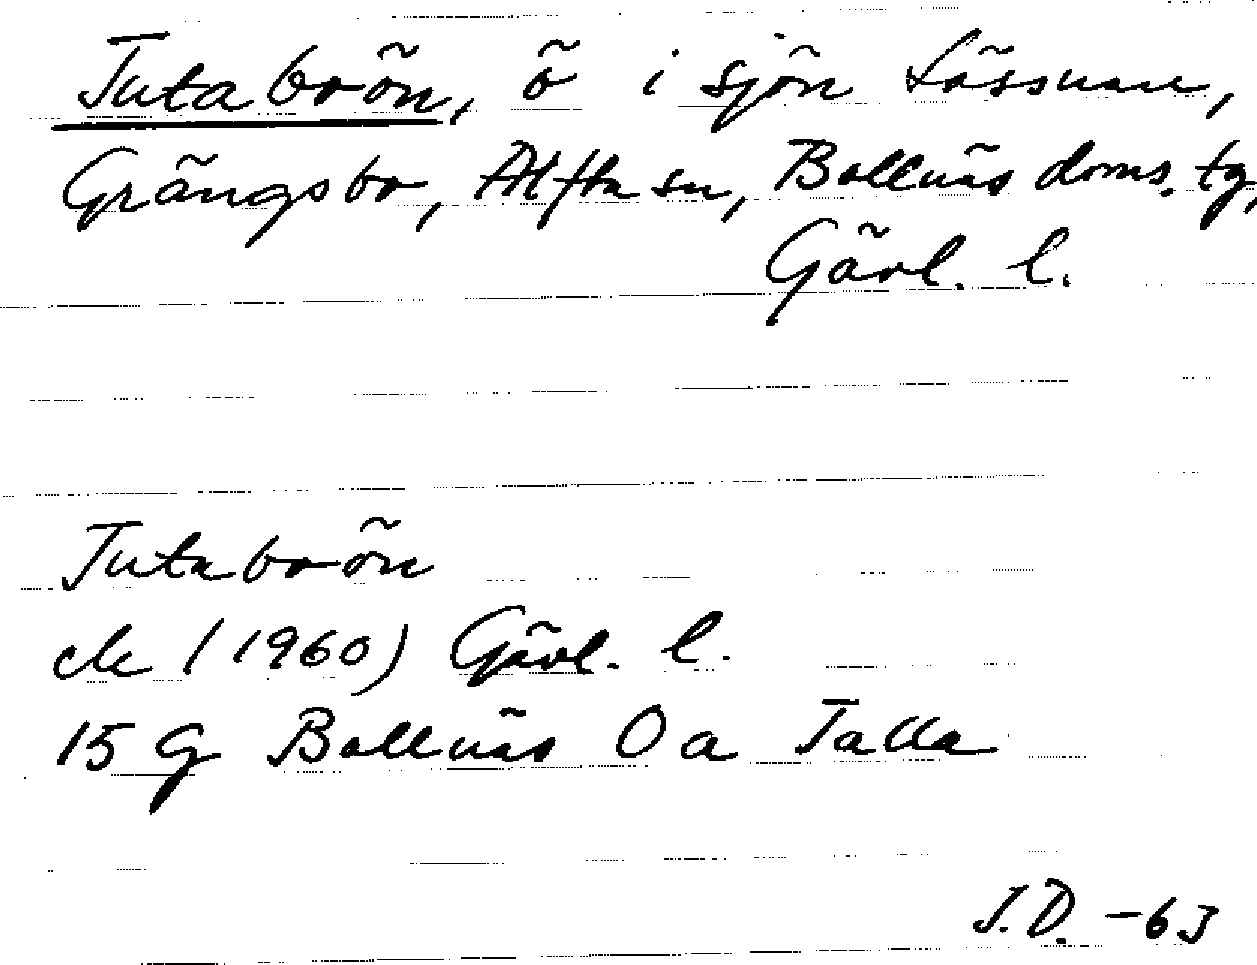 Jutaboön, ö i sjön Lössnan,
Grängsbo, Alfta sn, Bollnäs doms. tg,
Gävl. l.
Jutaboön
ek (1960) Gävl. l.
15 G Bollnäs 0 a Talla
J.D. -63